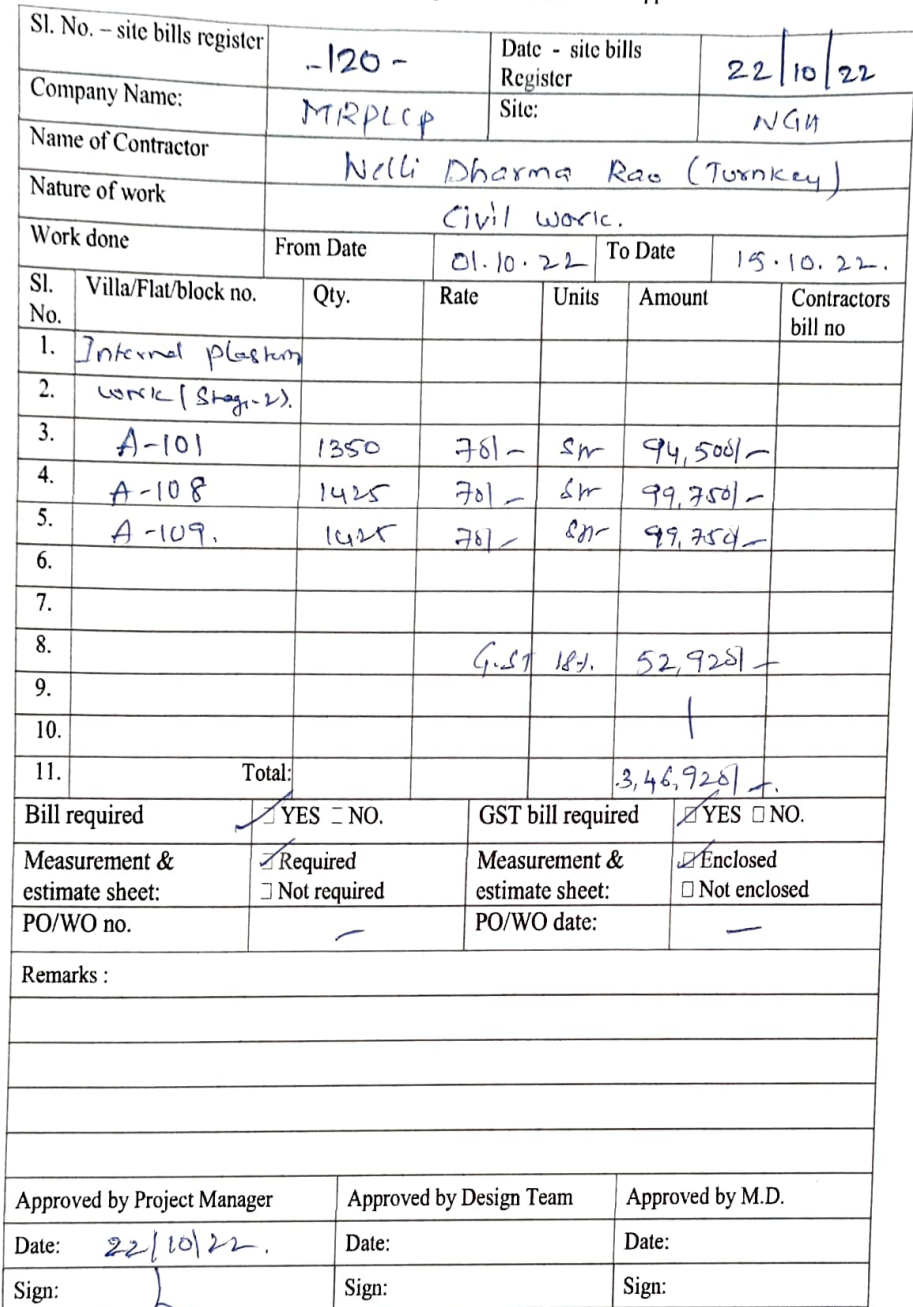 Sl. No. – site bills register -120- Date - site bills Register 22/10/22
Company Name: MRPLCP Site: NGH
Name of Contractor Nelli Dharma Rao (Turnkey)
Nature of work Civil work.
Work done From Date 01.10.22 To Date 15.10.22.
Sl. No. Villa/Flat/block no. Qty. Rate Units Amount Contractors bill no
1. Internal plastering
2. work (Stage-2).
3. A-101 1350 70/- Sft 94,500/-
4. A-108 1425 70/- Sft 99,750/-
5. A-109. 1425 70/- Sft 99,750/-
6.
7.
8. G.ST 18%. 52,920/-
9.
10.
11. Total: 3,46,920/-.
Bill required YES NO. GST bill required YES NO.
Measurement & estimate sheet: Required Not required Measurement & estimate sheet: Enclosed Not enclosed
PO/WO no. – PO/WO date: –
Remarks :
Approved by Project Manager Approved by Design Team Approved by M.D.
Date: 22/10/22. Date: Date:
Sign: Sign: Sign: